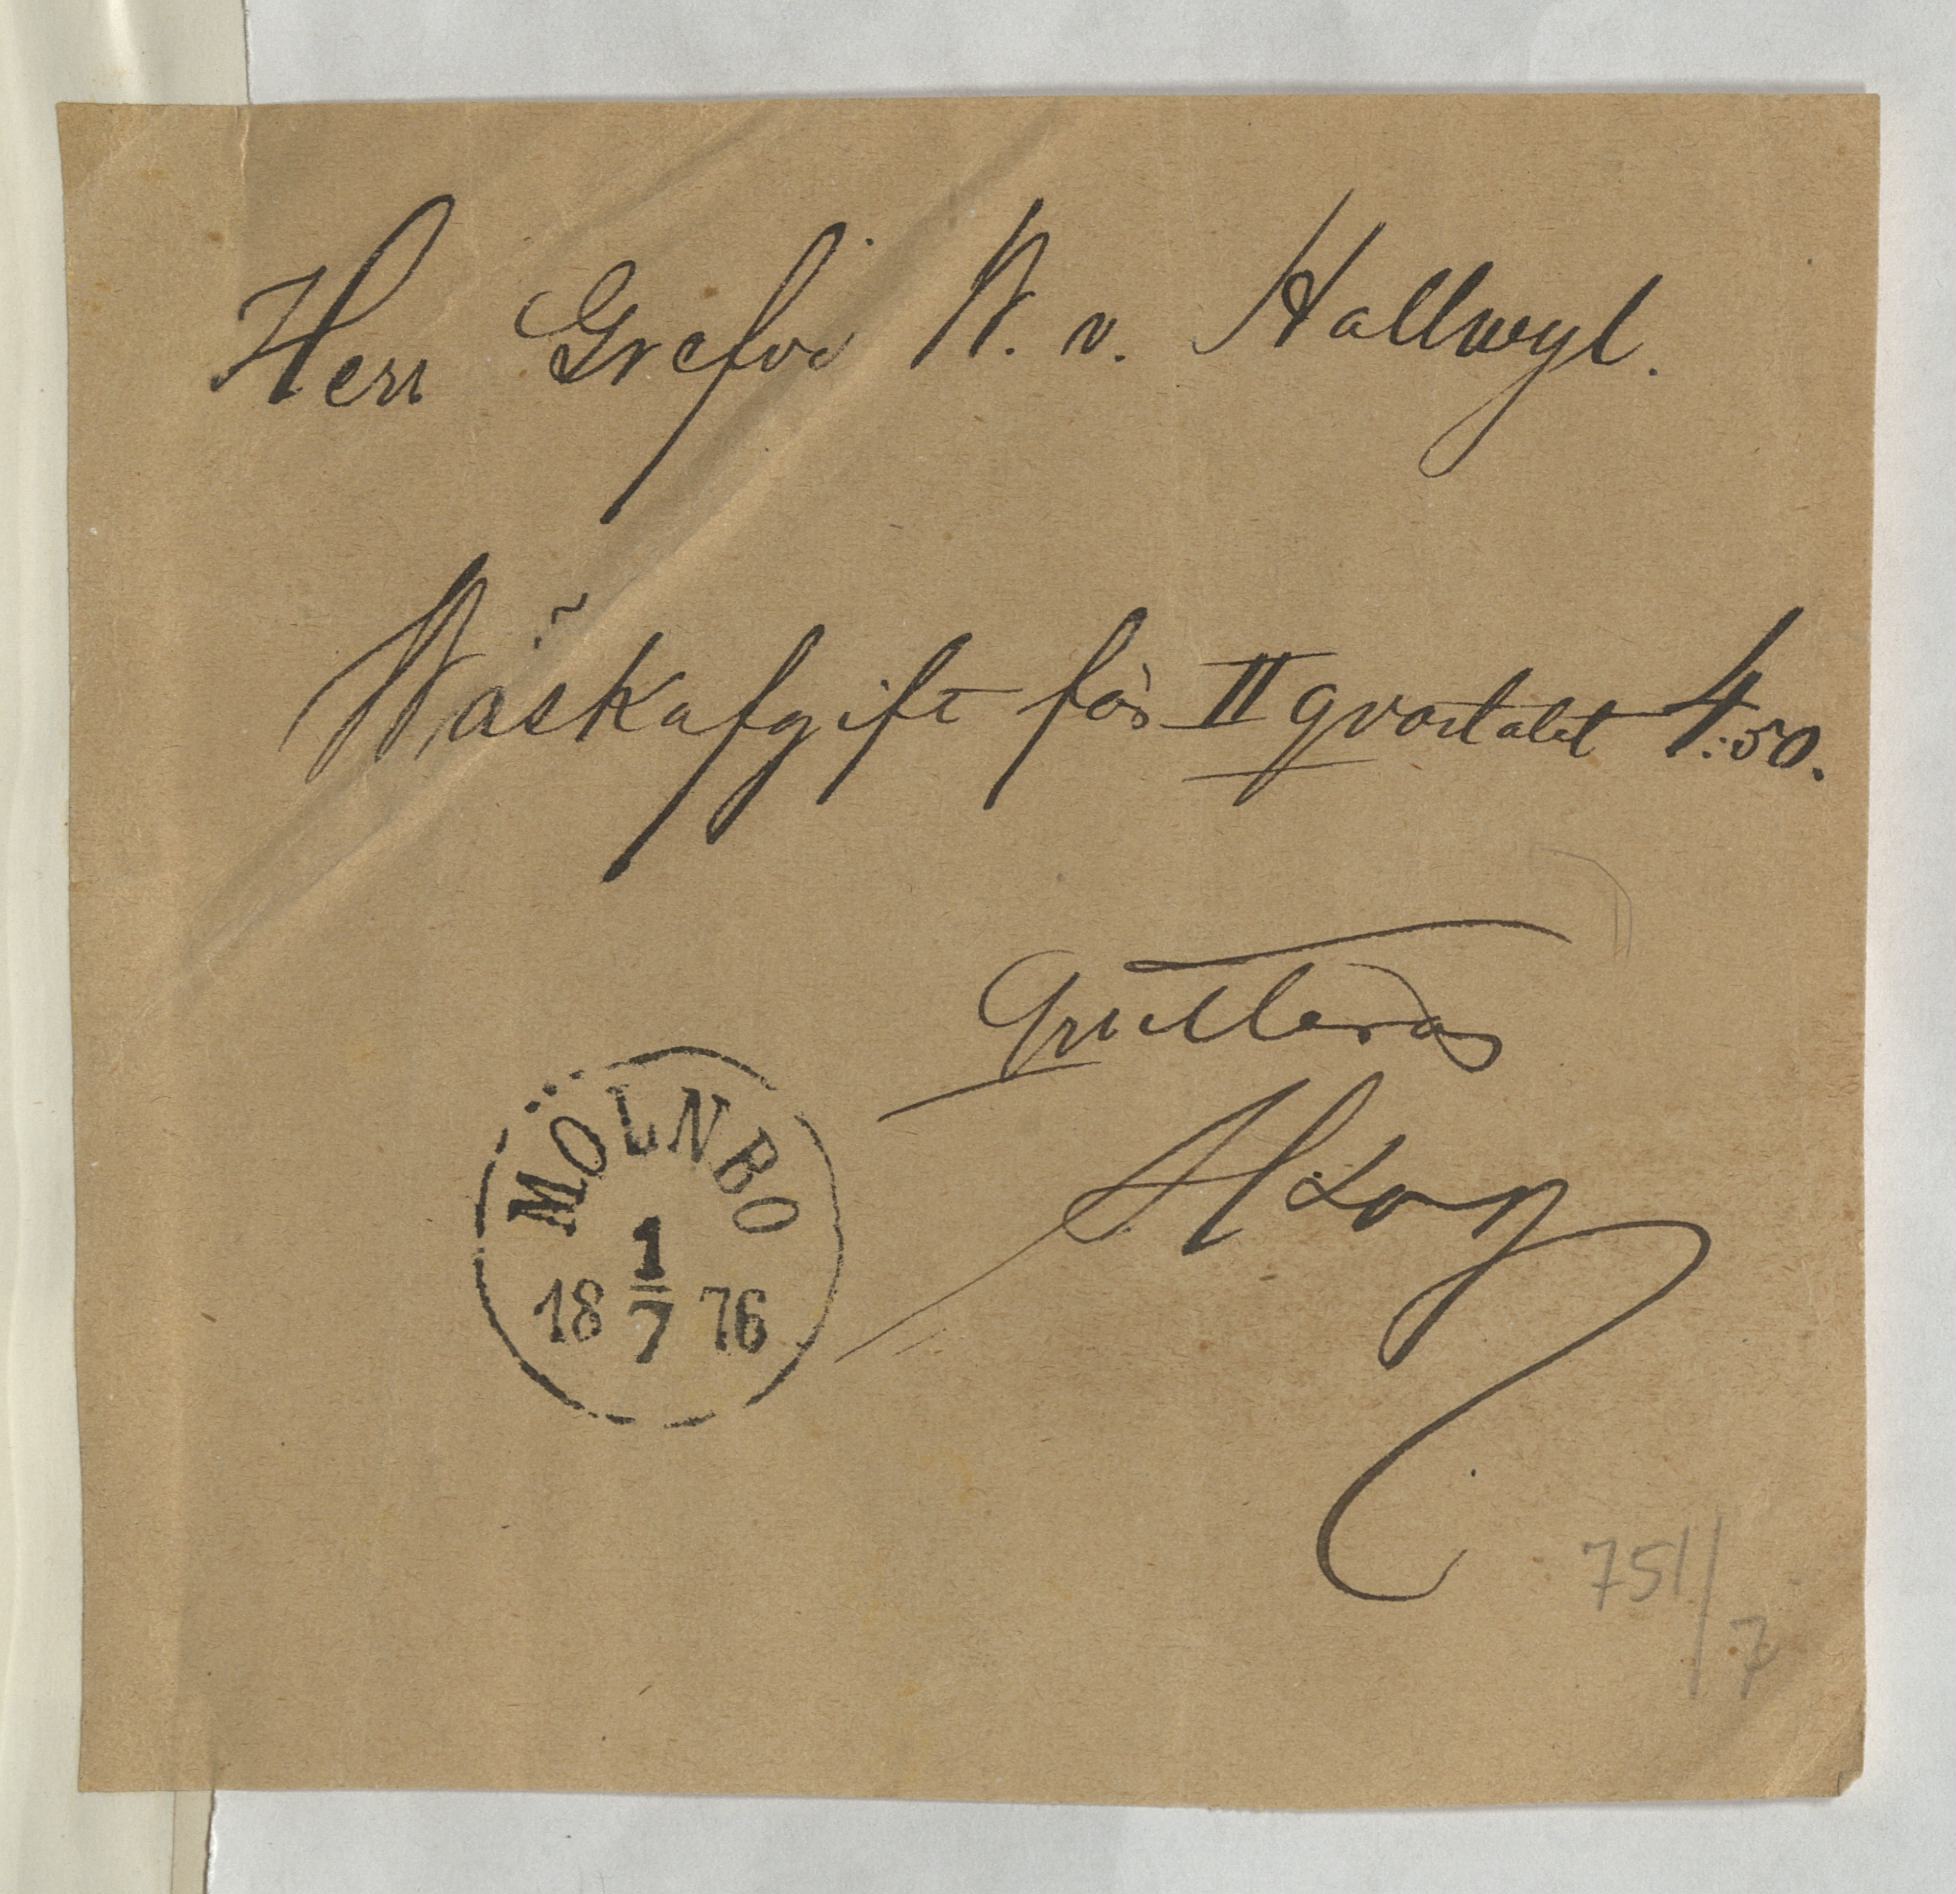 Herr Grefve W. v. Hallwyl.
Wäskafgift för II qvartalet 4:50.
Qvitteras
MÖLNBO
1
18 7 76
751/7